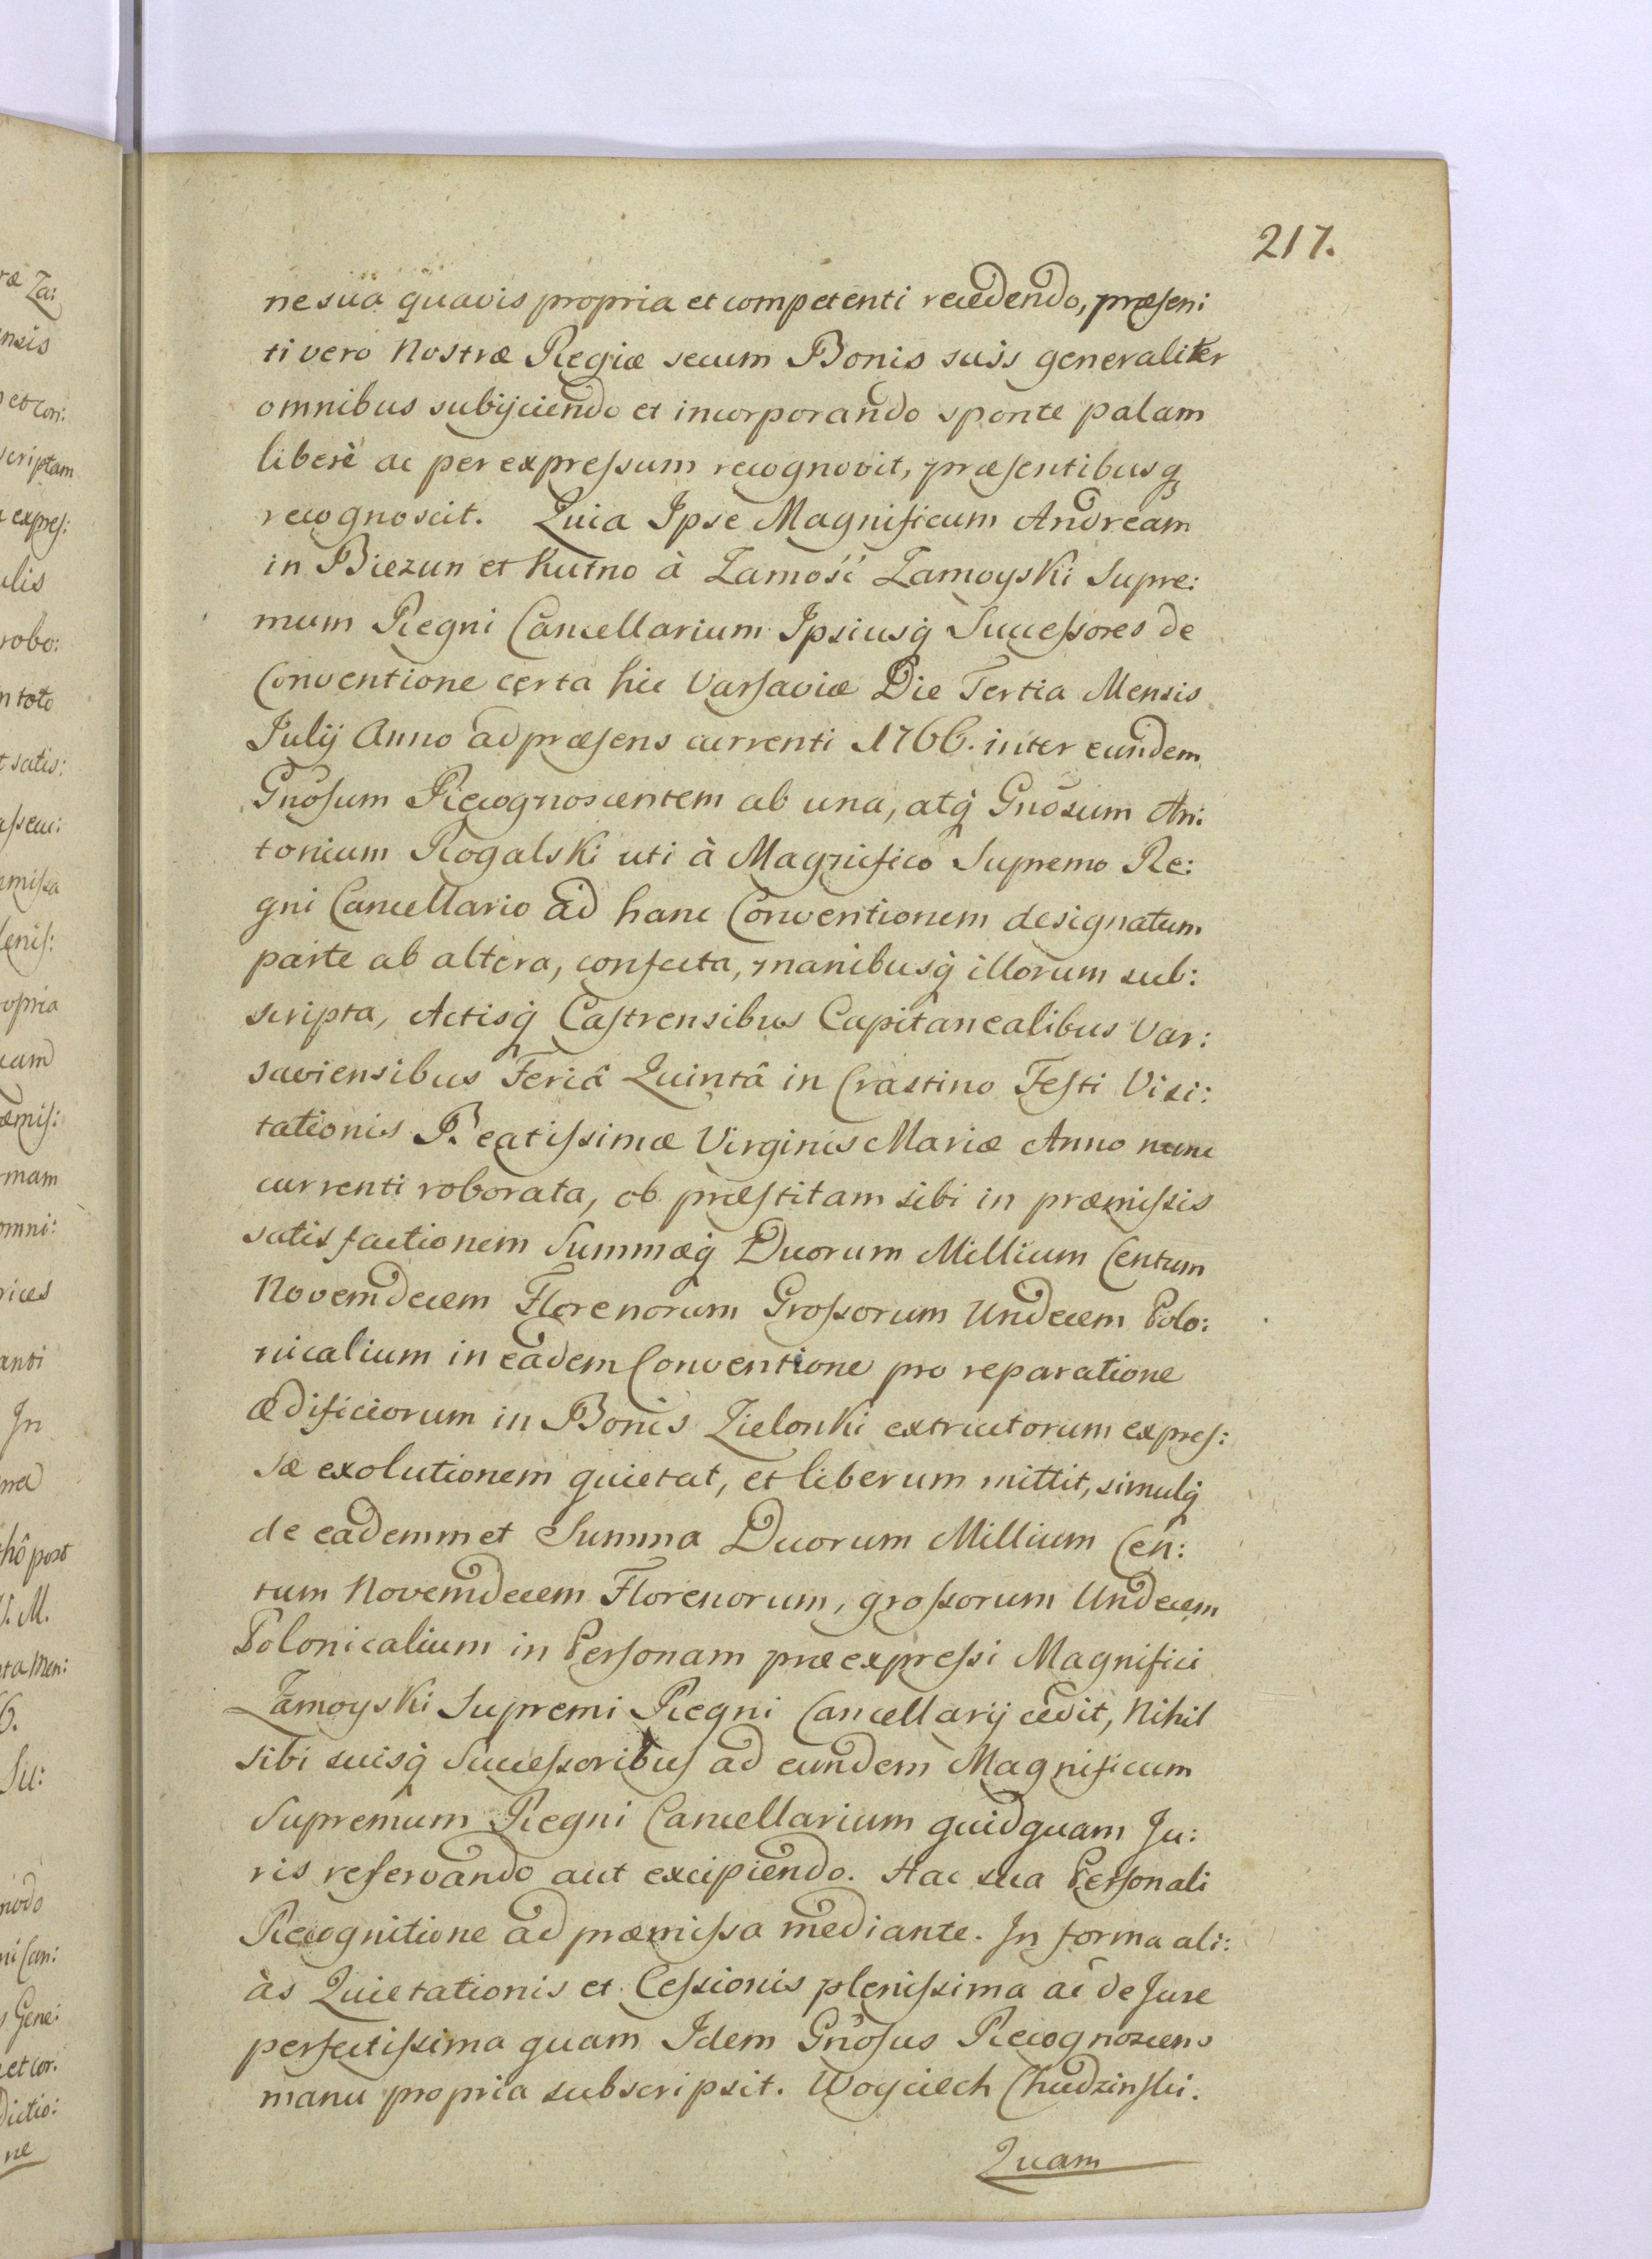 217.
ne sua quavis propria et competenti recedendo, præsen:
ti vero Nostræ Regiæ secum Bonis suis generaliter
omnibus subijciendo et incorporando sponte palam
liberè ac per expressum recognovit, præsentibusq
recognoscit. Quia Ipse Magnificum Andream
in Biezun et Kutno à Zamość Zamoyski Supre:
mum Regni Cancellarium Ipsiusq Successores de
Conventione certa hic Varsaviæ Die Tertia Mensis
Julij Anno ad præsens currenti 1766. inter eundem
Gnôsum Recognoscentem ab una, atq Gnôsum An:
tonium Rogalski uti à Magnifico Supremo Re:
gni Cancellario ad hanc Conventionem designatum
parte ab altera, confecta, manibusq illorum sub:
scripta, Actisq Castrensibus Capitanealibus Var:
saviensibus Feriâ Quintâ in Crastino Festi Visi:
tationis Beatissimæ Virginis Mariæ Anno nunc
currenti roborata, ob præstitam sibi in præmissis
satisfactionem Summæq Duorum Millium Centum
Novemdecem Florenorum Grossorum Undecem Polo:
nicalium in eadem Conventione pro reparatione
ædificiorum in Bonis Zielonki extructorum expres:
sæ exolutionem quietat, et liberum mittit, simulq
de eademmet Summa Duorum Millium Cen:
tum Novemdecem Florenorum, grossorum Undecem
Polonicalium in Personam præexpressi Magnifici
Zamoyski Supremi Regni Cancellarij cedit, Nihil
sibi suisq Successoribus ad eundem Magnificum
Supremum Regni Cancellarium quidquam Ju:
ris reservando aut excipiendo. Hac sua Personali
Recognitione ad præmissa mediante. In forma ali:
às Quietationis et Cessionis plenissima ac de Jure
perfectissima quam Idem Gnôsus Recognoscens
manu propria subscripsit. Woyciech Chudzinski.
Quam